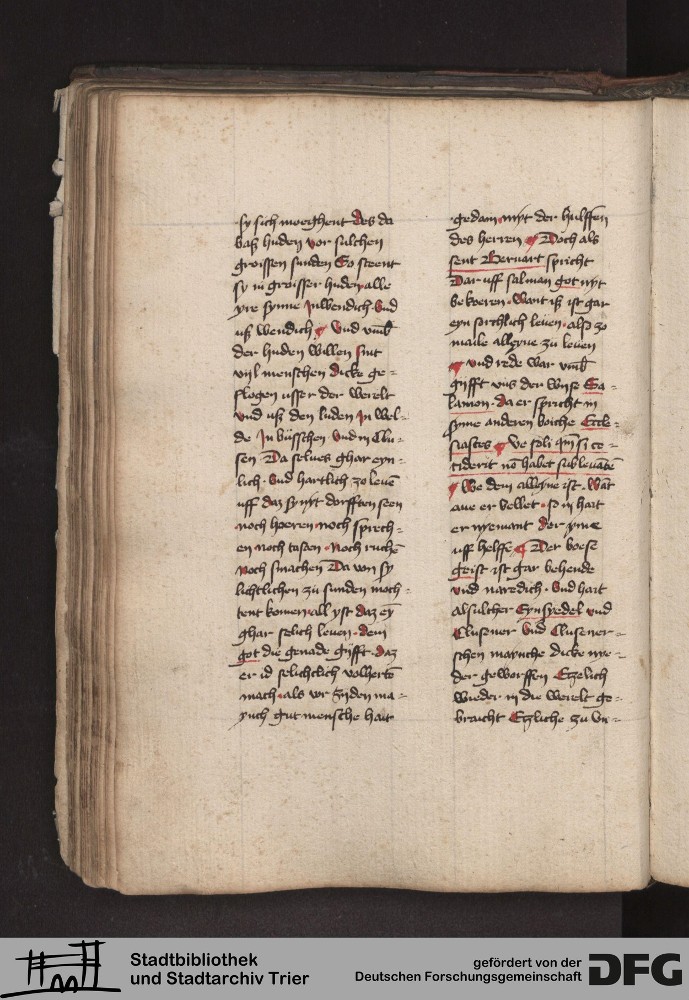 sy sich moeghent des da
bas huden vor sulchen
groissen sunden So steent
sy in groisser huden alle
yre synne Inwendich vnd
uß wendich ¶ Vnd vmb
der huden willen sint
vyl menschen dicke ge=
flogen usser der werelt
vnd uß den luden In wel=
de In büsschen vnd in Clu=
sen Da selues ghar eyn=
lich · vnd hartlich zo leuen̄
uff daz sy nyt dorfften seen
noch hoeren noch sprech=
en noch tasten · Noch ruchē
Noch smachen Da von sy
lichtlichen zu sunden moch=
tent komen · all yst daz eȳ
ghar selich leuen · dem
got die genade gyfft · daz
er id selichlich volhertē
mach · als vor ziden ma=
ynch gut mensche hait
gedam · myt der hulffen
des herren ¶ Doch als
sent Bernart spricht
Dar uff sal man got nyt
bekoeren · Want iß ist gar
eyn sorchlich leuen · also zo
maile alleyne zu leuen
¶ vnd rede war vmb
gyfft vns der wyse Sa=
lamon · da er spricht in
syme anderen boiche Eccle=
siastes ¶ Ve soli qn̄ si ce=
ciderit nō habet subleuātē
¶ We dem alleyne ist · wāt
aue er vellet · so in hait
er nyemant der yme
uff helffe ¶ Der boese
geist ist gar behende
vnd naredich · vnd hait
alsulcher Eynsyedel vnd
Clusener vnd Clusener=
schen maynche dicke nye=
der geworffen · Etzelich
wieder in die werelt ge=
braicht Etzliche zu vn=
Stadtbibliothek
und Stadtarchiv Trier
gefördert von der
Deutschen Forschungsgemeinschaft
DFG